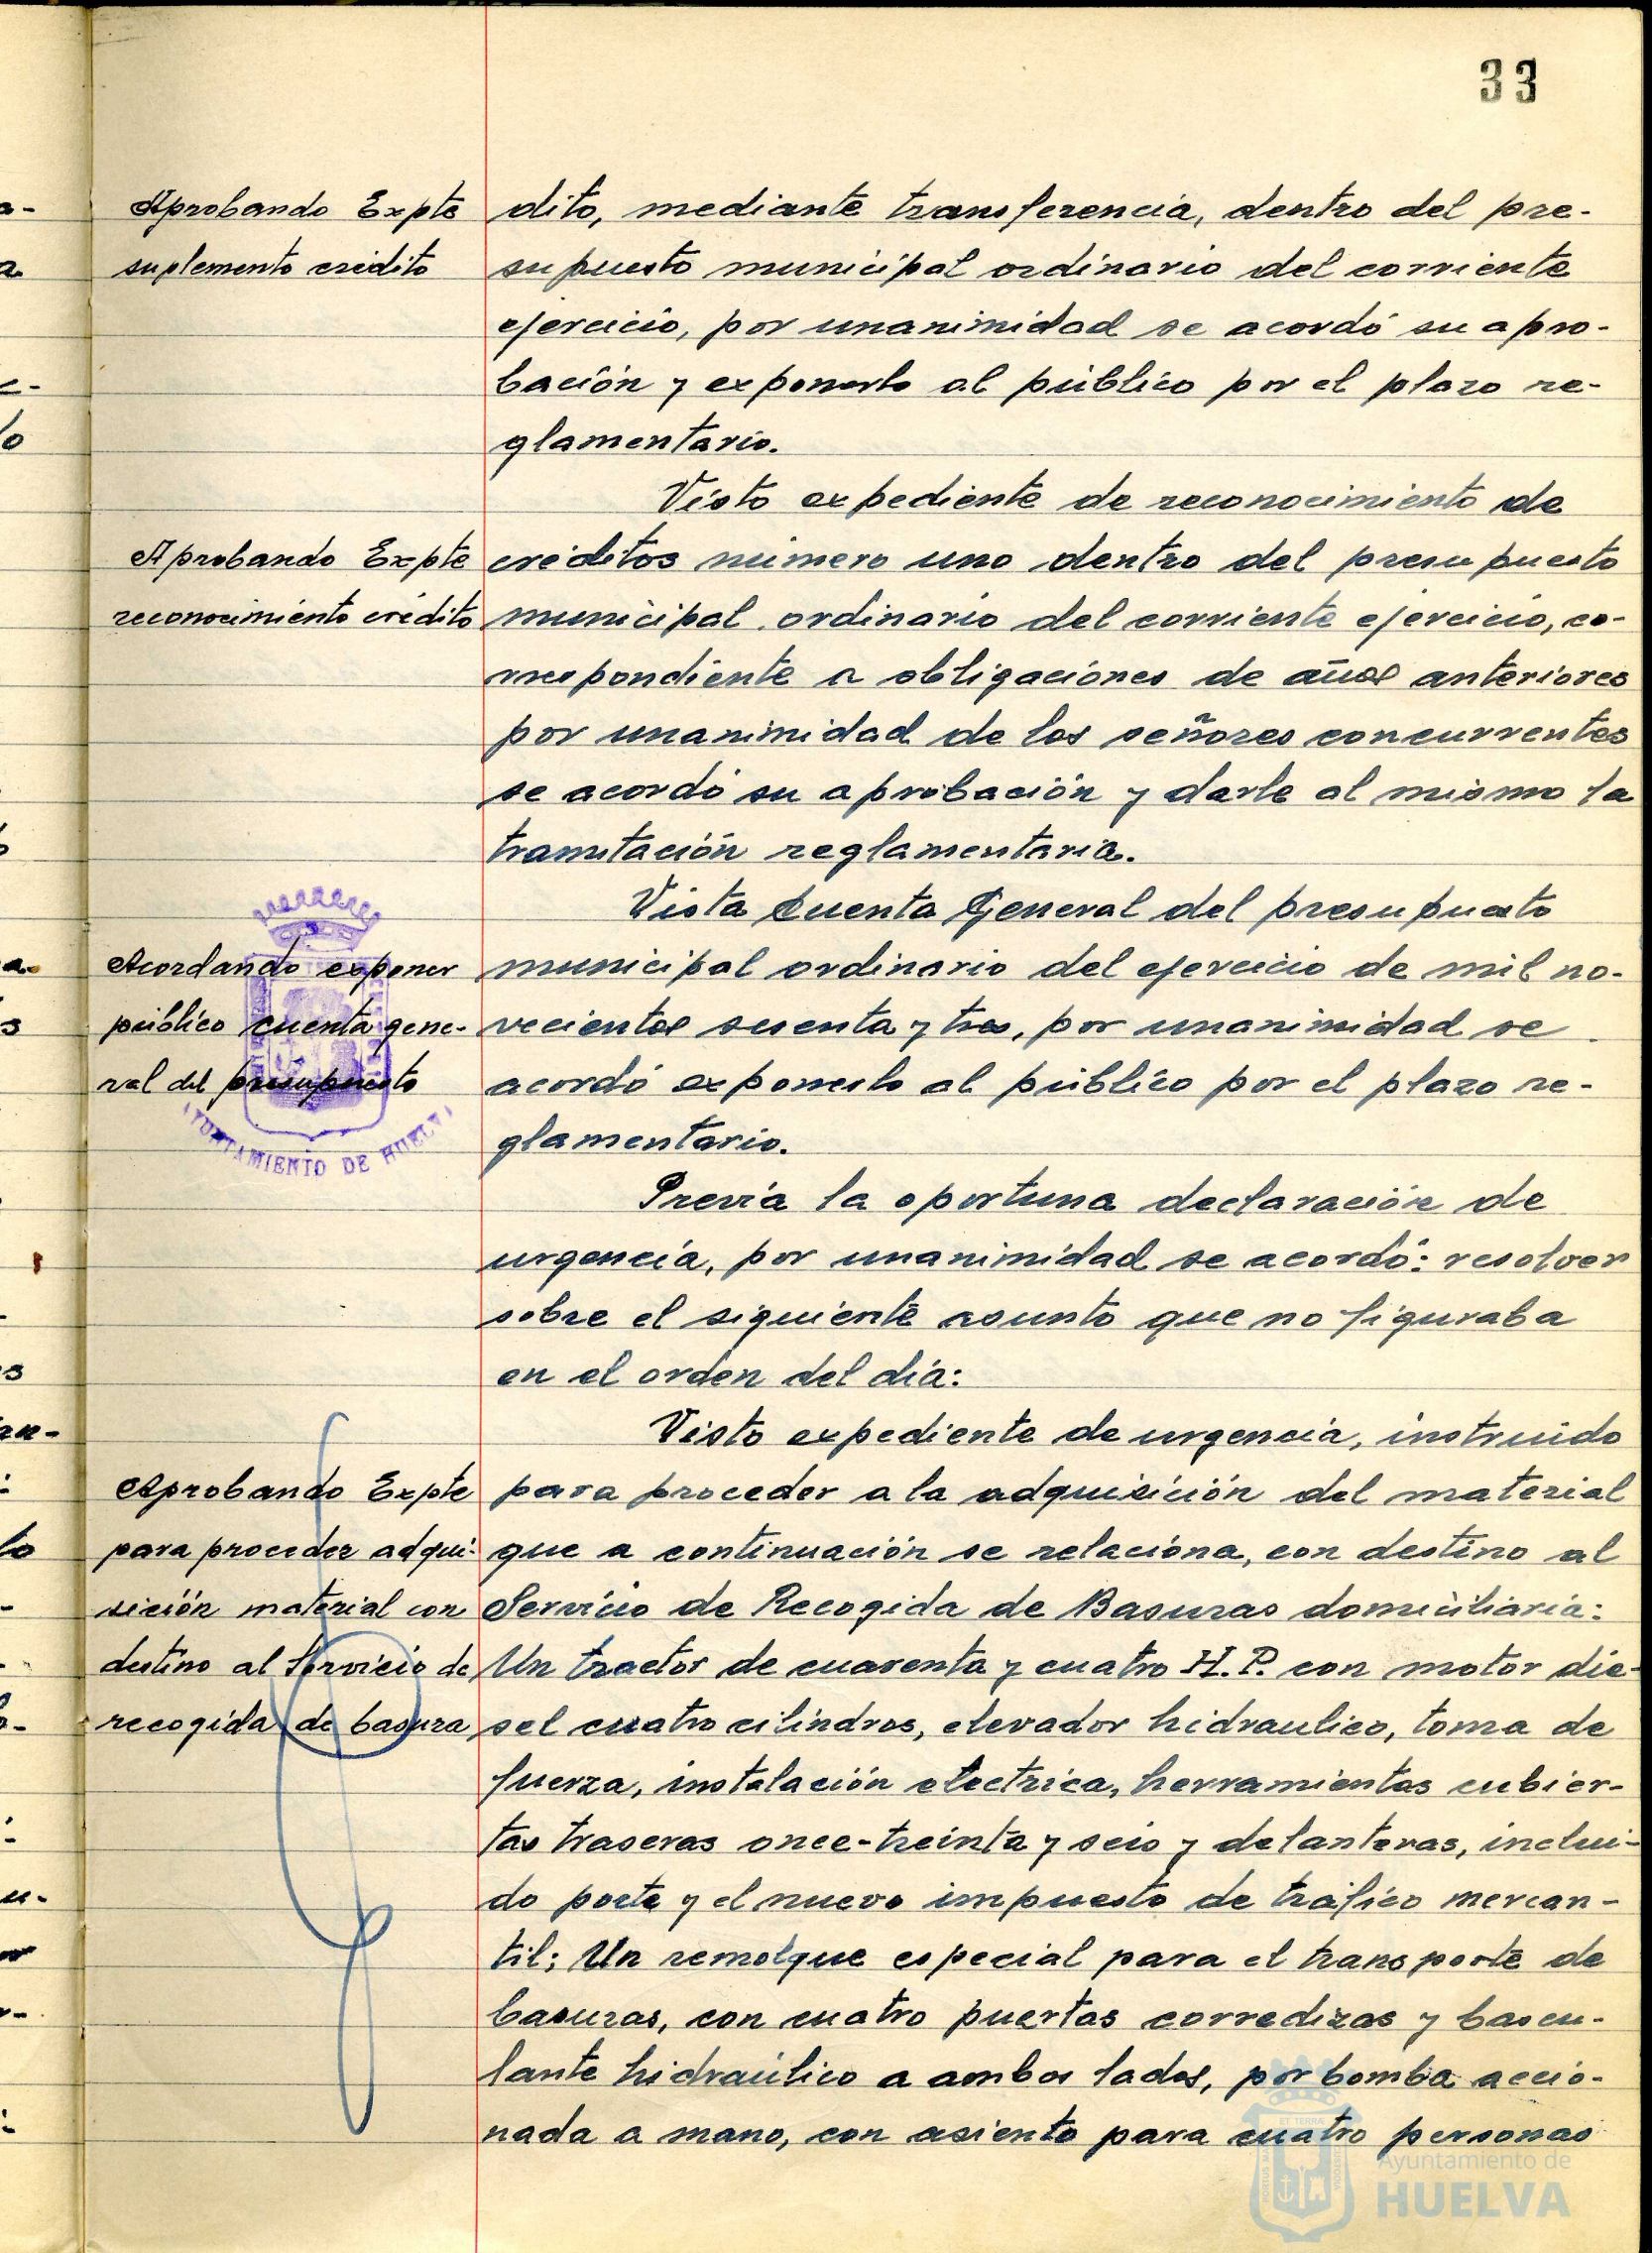 33
Aprobando Expte
suplemento crédito
dito, mediante transferencia, dentro del pre-
supuesto municipal ordinario del corriente
ejercicio, por unanimidad se acordó su apro-
bación y exponerlo al público por el plazo re-
glamentario.
Visto expediente de reconocimiento de
Aprobando Expte
reconocimiento crédito
créditos número uno dentro del presupuesto
municipal ordinario del corriente ejercicio, co-
rrespondiente a obligaciones de años anteriores
por unanimidad de los señores concurrentes
se acordó su aprobación y darle al mismo la
tramitación reglamentaria.
Vista Cuenta General del presupuesto
Acordando exponer
público cuenta gene-
ral del presupuesto
AYUNTAMIENTO DE HUELVA
municipal ordinario del ejercicio de mil no-
vecientos sesenta y tres, por unanimidad se
acordó exponerlo al público por el plazo re-
glamentario.
Previa la oportuna declaración de
urgencia, por unanimidad se acordó: resolver
sobre el siguiente asunto que no figuraba
en el orden del día:
Visto expediente de urgencia, instruido
Aprobando Expte
para proceder adqui-
sición material con
destino al Servicio de
recogida de basura
para proceder a la adquisición del material
que a continuación se relaciona, con destino al
Servicio de Recogida de Basuras domiciliaria:
Un tractor de cuarenta y cuatro H.P. con motor die-
sel cuatro cilindros, elevador hidraulico, toma de
fuerza, instalación electrica, herramientas cubier-
tas traseras once-treinta y seis y delanteras, inclui-
do porte y el nuevo impuesto de tráfico mercan-
til; Un remolque especial para el transporte de
basuras, con cuatro puertas corredizas y bascu-
lante hidraúlico a ambos lados, por bomba accio-
nada a mano, con asiento para cuatro personas
Ayuntamiento de
HUELVA